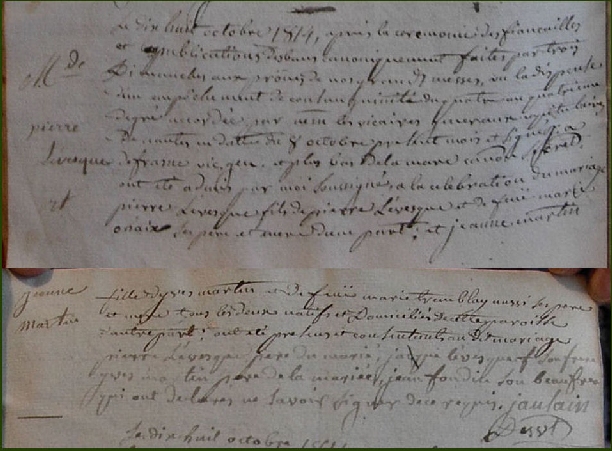 M. de
pierre
Levesque
et
Le dix huit octobre 1814, après la ceremonie des fiancailles
et publications des bans canoniquement faites par trois
Dimanches aux prônes de nos grandes messes, vu la dispense
d'un empêchement de consanguinité du quatre au quatrieme
degré accordée par mm les vicaires generaux capitulaires
de nantes en datte du 8 octobre present mois et signée
defrance vic. gen. et plus bas de la marre
ont été admis par moi soussigné a la celebration du mariage
pierre Levesque fils de pierre Levesque et de feüe marie
son pere et mere d'une part; et jeanne martin
jeanne
martin
fille d'yves martin et de feüe marie tremblay aussi ses pere
et mere tous les deux natifs et Domiciliés de cette paroisse
d'autre part; ont été presents et consentants au dt mariage
pierre Levesque pere du marié; jacque levesque son frere
yves martin pere de la mariée, jean fondile son beaufrere
qui ont declarés ne savoir signer de ce requis. jaulain
Desst
Le dix huit octobre